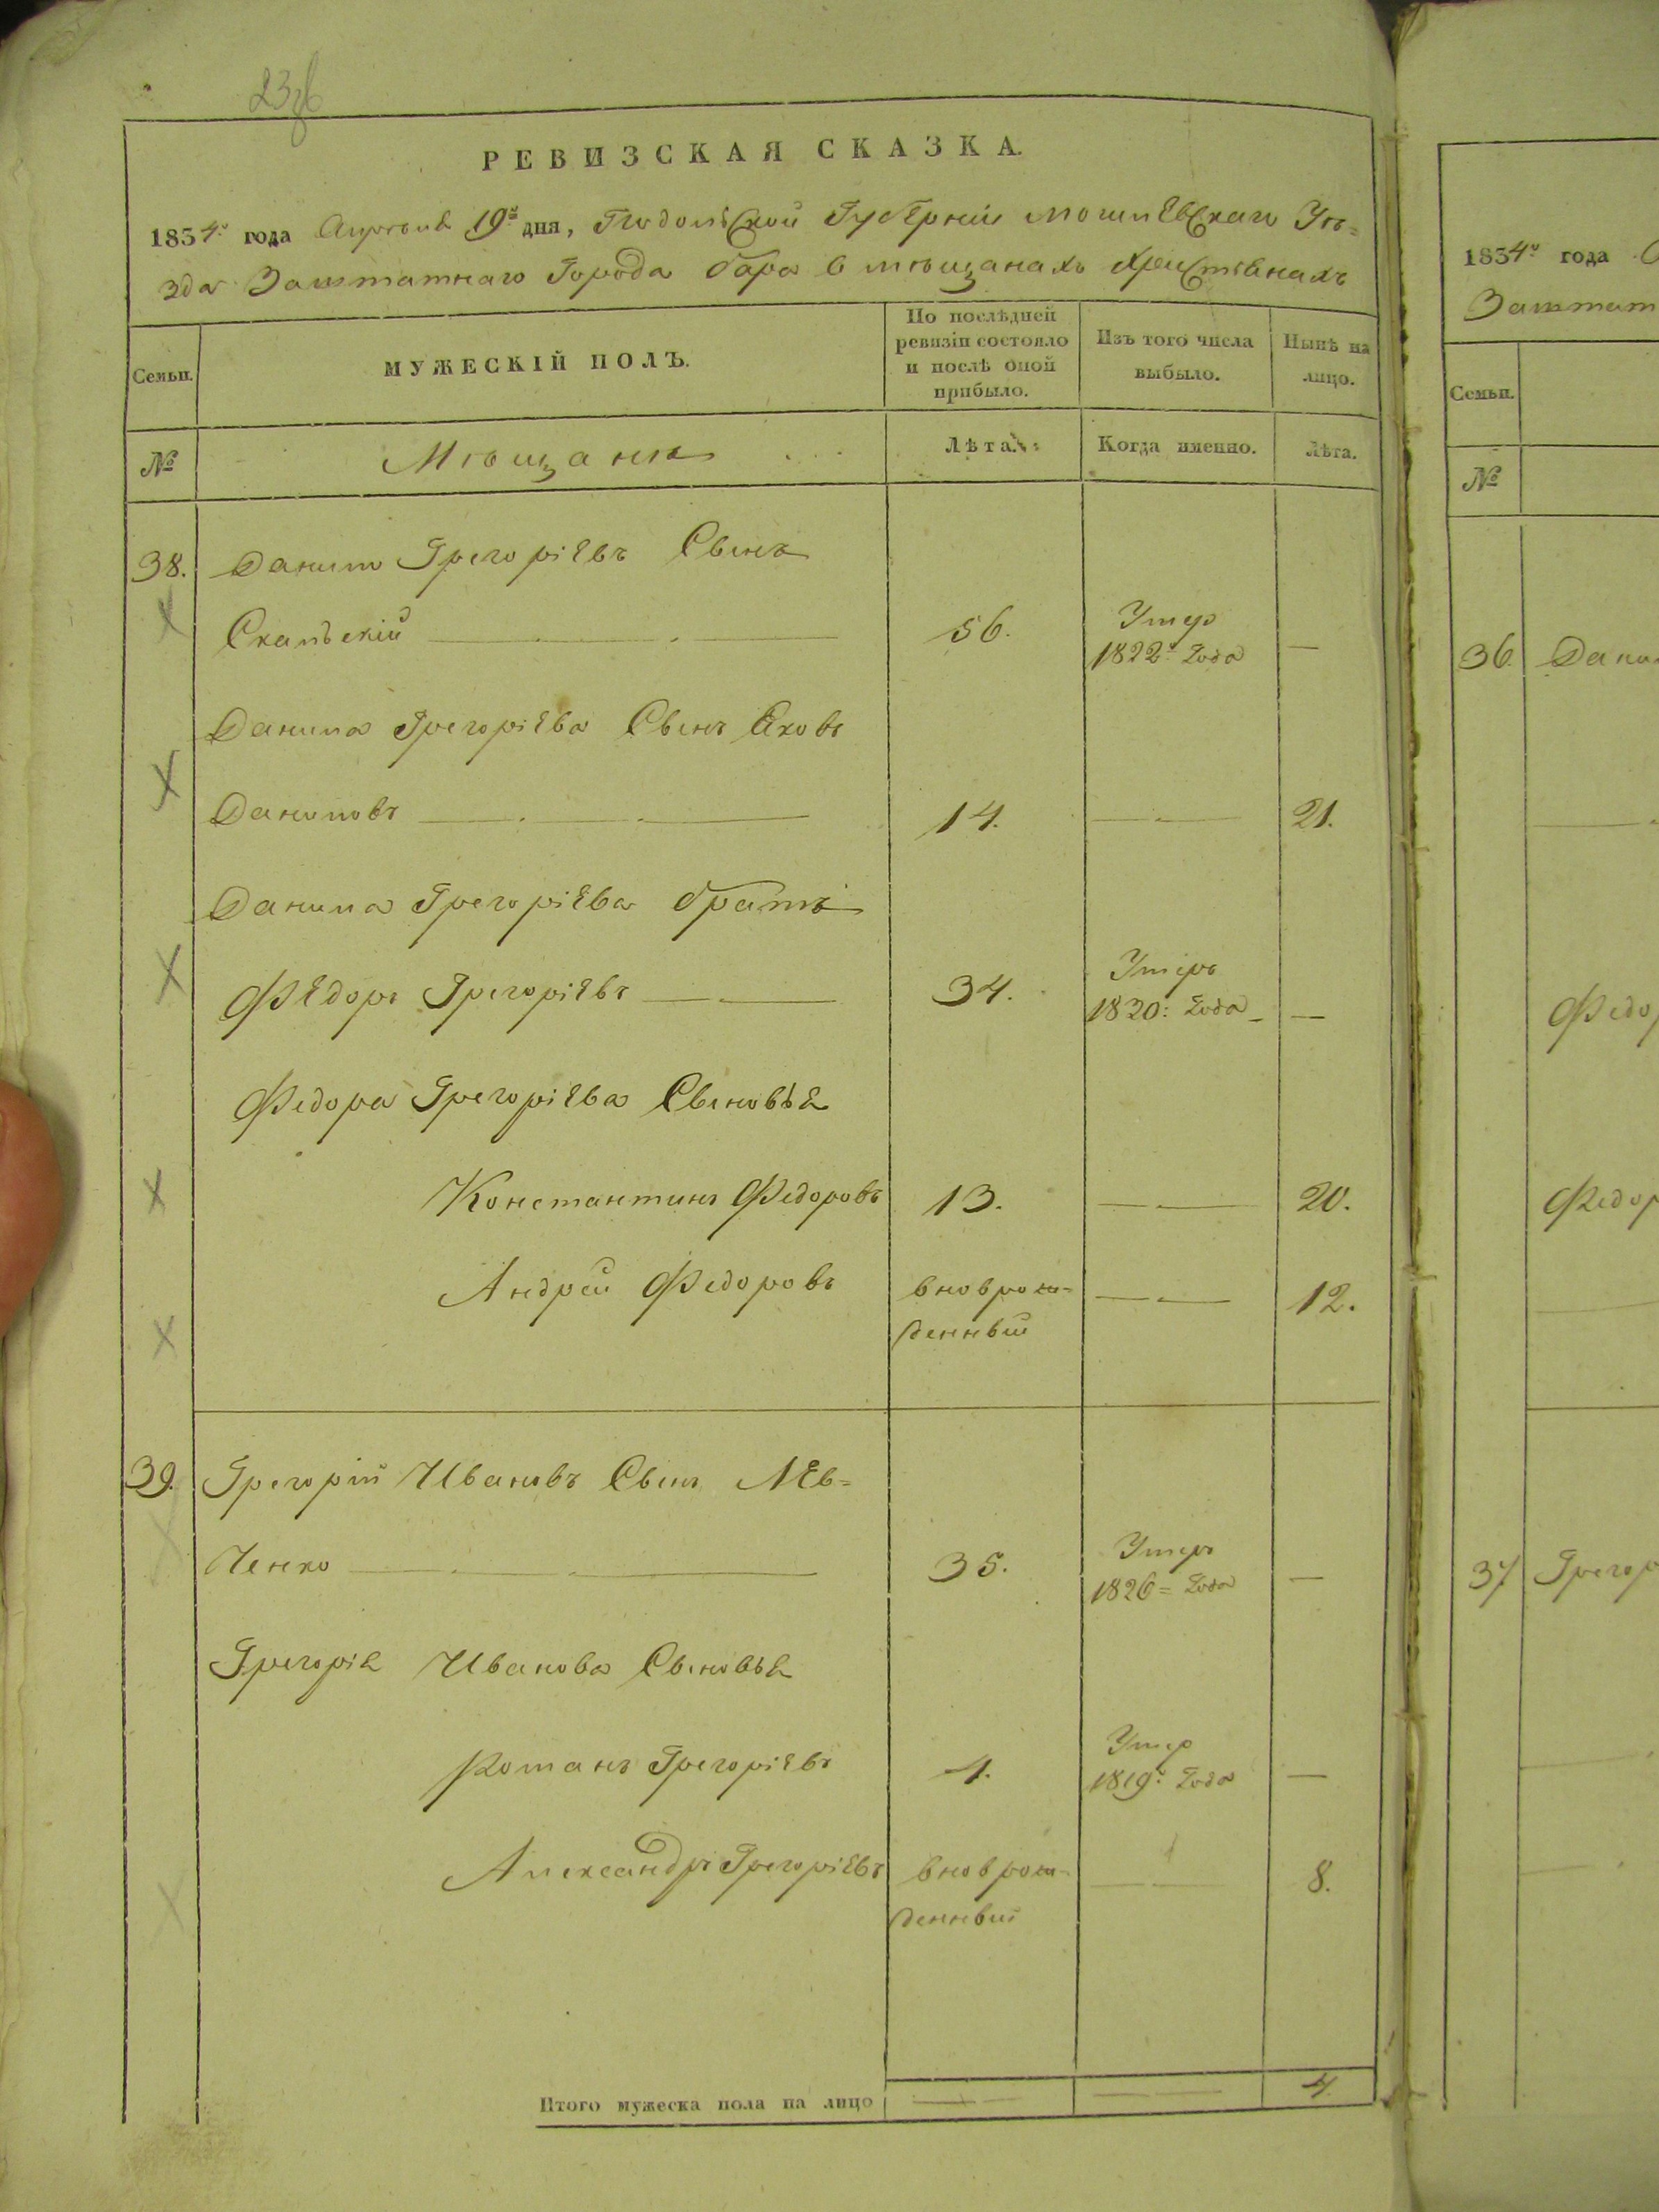 РЕВИЗСКАЯ СКАЗКА.
1834го года Апреля 19го дня, Подольской Губерніи Могилевскаго Уѣ=
зда Заштатнаго Города Бара в мѣщанахъ Христіянахъ
Семьи.
МУЖЕСКІЙ ПОЛЪ.
По послѣдней ревизіи состояло и послѣ оной прибыло.
Изъ того числа выбыло.
Нынѣ на лицо.
№
Мѣщане
Лѣта.
Когда именно.
Лѣта.
38. Данило Грегоріевъ Сынъ
Скальскій 56. Умер 1822го Года —
Данила Грегоріева Сынъ Яковъ
Даниловъ 14. — 21.
Данила Грегоріева братъ
Федоръ Грегоріевъ 34. Умеръ 1830: Года —
Федора Грегоріева Сыновья
Константинъ Федоровъ 13. — 20.
Андрей Федоровъ вноврож-
денный — 12.
39. Грегорій Ивановъ Сынъ Лев=
ченко 35. Умеръ 1826= Года —
Грегорія Иванова Сыновья
Романъ Грегоріевъ 4. Умер 1819го Года —
Александръ Грегоріевъ вноврож-
денный — 8.
Итого мужеска пола на лицо — — 4
1834го года
Заштат
Семьи.
№
36. Дани
Федо
Федор
37. Грегор